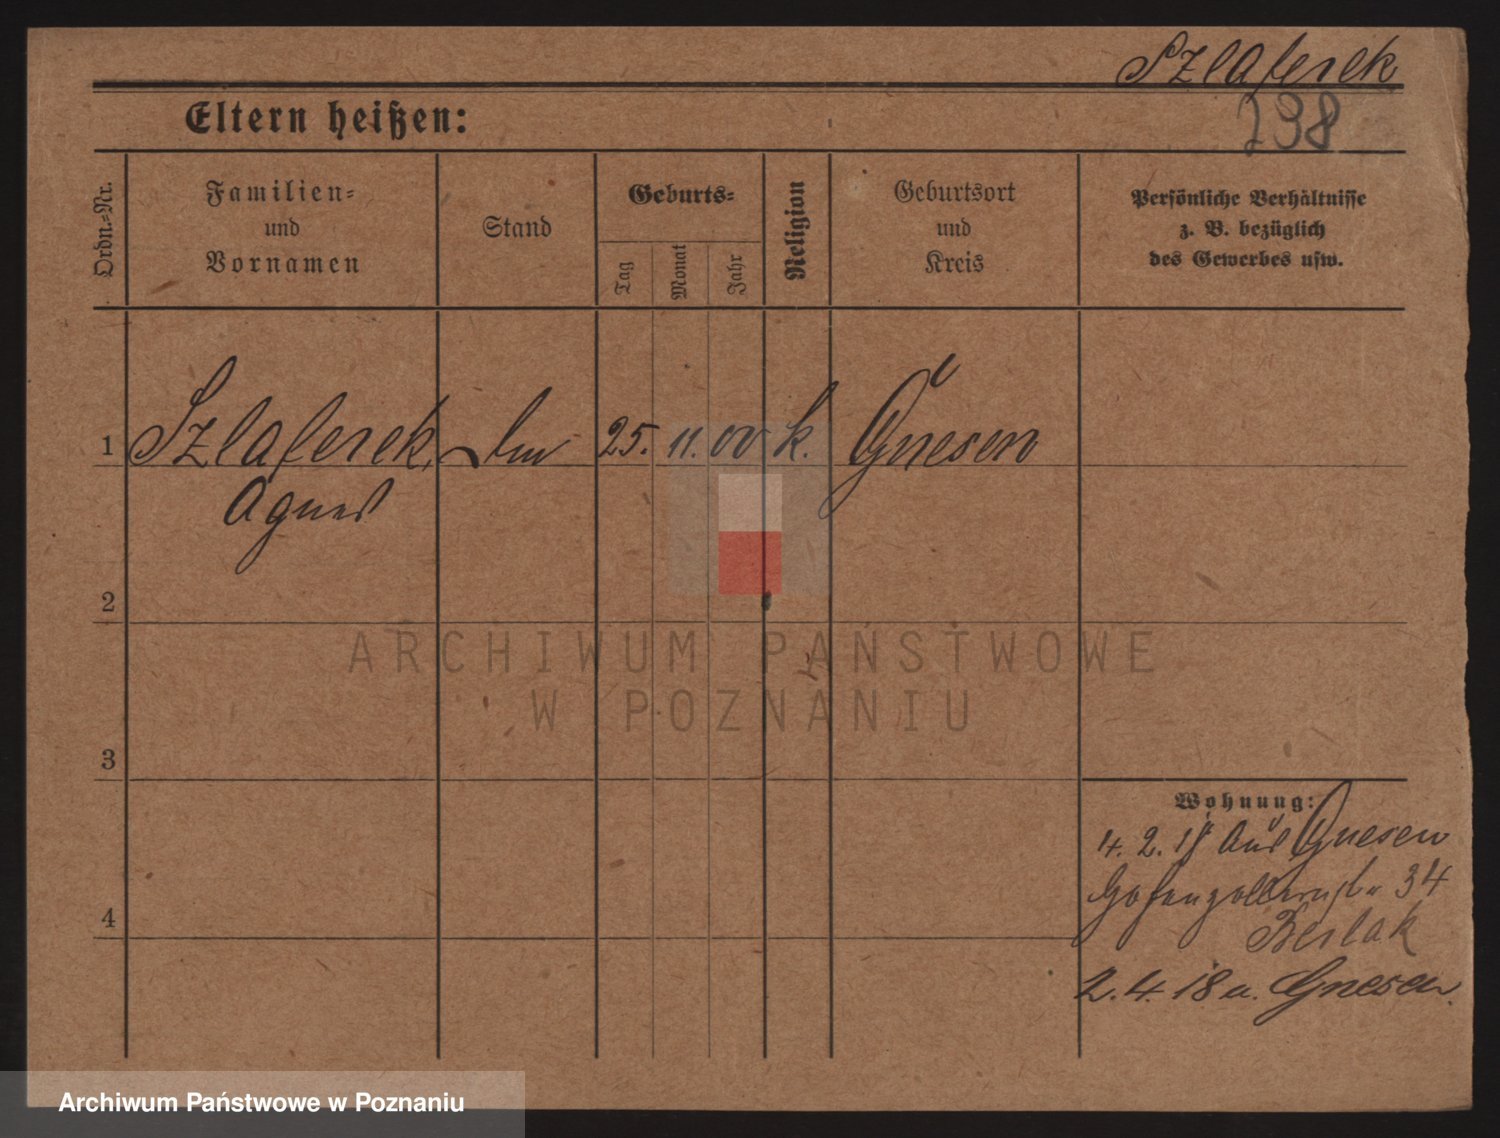 Szlaferek
238
Eltern heißen:
Ordn.=Nr.
Familien=
und
Vornamen
Stand
Geburts=
Tag
Monat
Jahr
Religion
Geburtsort
und
Kreis
Persönliche Verhältnisse
z. B. bezüglich
des Gewerbes usw.
1
Szlaferek, 25. 11. 00 k. Gnesen
Agnes
2
3
4
Wohnung:
4. 2. 18 aus Gnesen
Hohenzollernstr 34
2. 4. 18 a. Gnesen.
ARCHIWUM PAŃSTWOWE
W POZNANIU
Archiwum Państwowe w Poznaniu